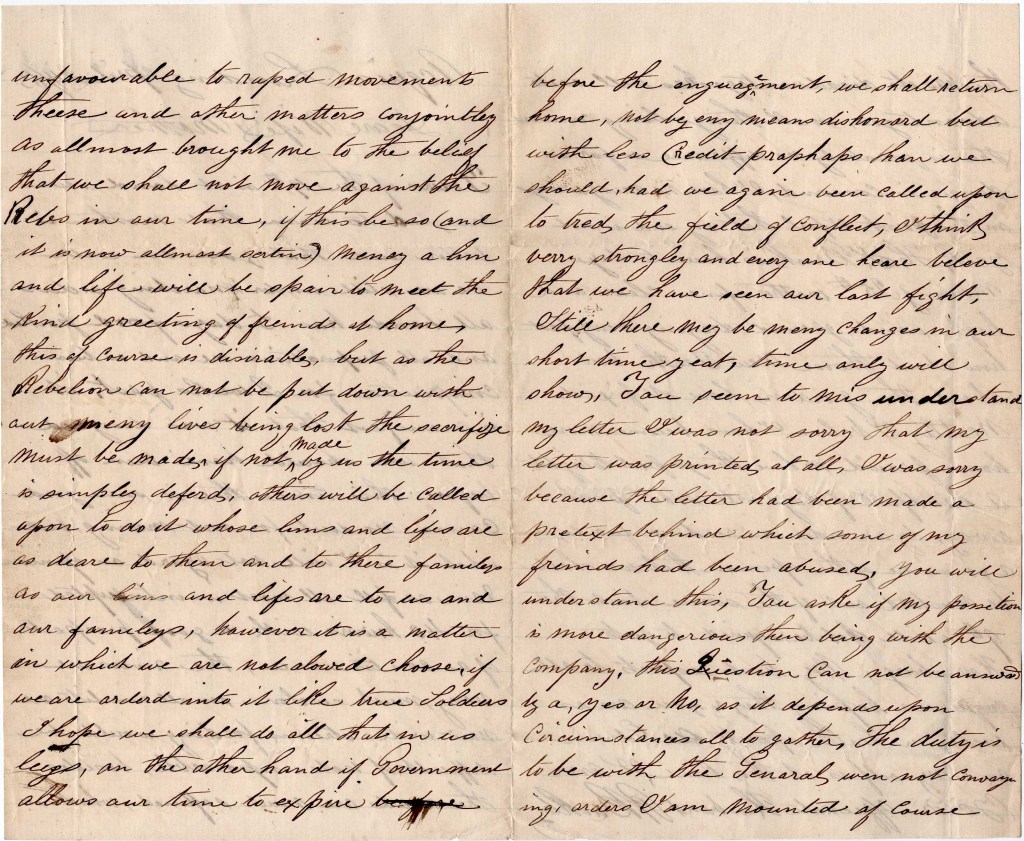 unfavourable to raped movements
theese and other matters conjointley
as allmost brought me to the belief
that we shall not move against the
Rebs in our time, if this be so (and
it is now allmost sertin) meney a lim
and life will be spair to meet the
kind greeting of freinds at home,
this of course is disirable, but as the
Rebelion can not be put down with
out meny lives being lost the secrifize
must be made, if not made by us the time
is simpley deferd, others will be called
upon to do it whose lims and lifes are
as deare to them and to there familys
as our lims and lifes are to us and
our fameleys, however it is a matter
in which we are not alowed choose, if
we are orderd into it like true Soldiers
I hope we shall do all that in us
leigs, on the other hand if Government
allows our time to expire before
before the enguagment, we shall return
home, not by eny means dishonard but
with less Credit praphaps than we
should, had we again been called upon
to tred, the field of conflect, I think
verry strongley and every one heare beleve
that we have seen our last fight,
Still there mey be meny changes in our
short time yeat, time only will
show, You seem to mis understand
my letter I was not sorry that my
letter was printed, at all, I was sorry
because the letter had been made a
pretext behind which some of my
freinds had been abused, you will
understand this, You aske if my possetion
is more dangerious then being with the
company, this Question can not be answerd
by a, yes or No, as it depends upon
Circumstances all to gather, The duty is
to be with the Genaral, wen not convay
ing, orders I am mounted of course